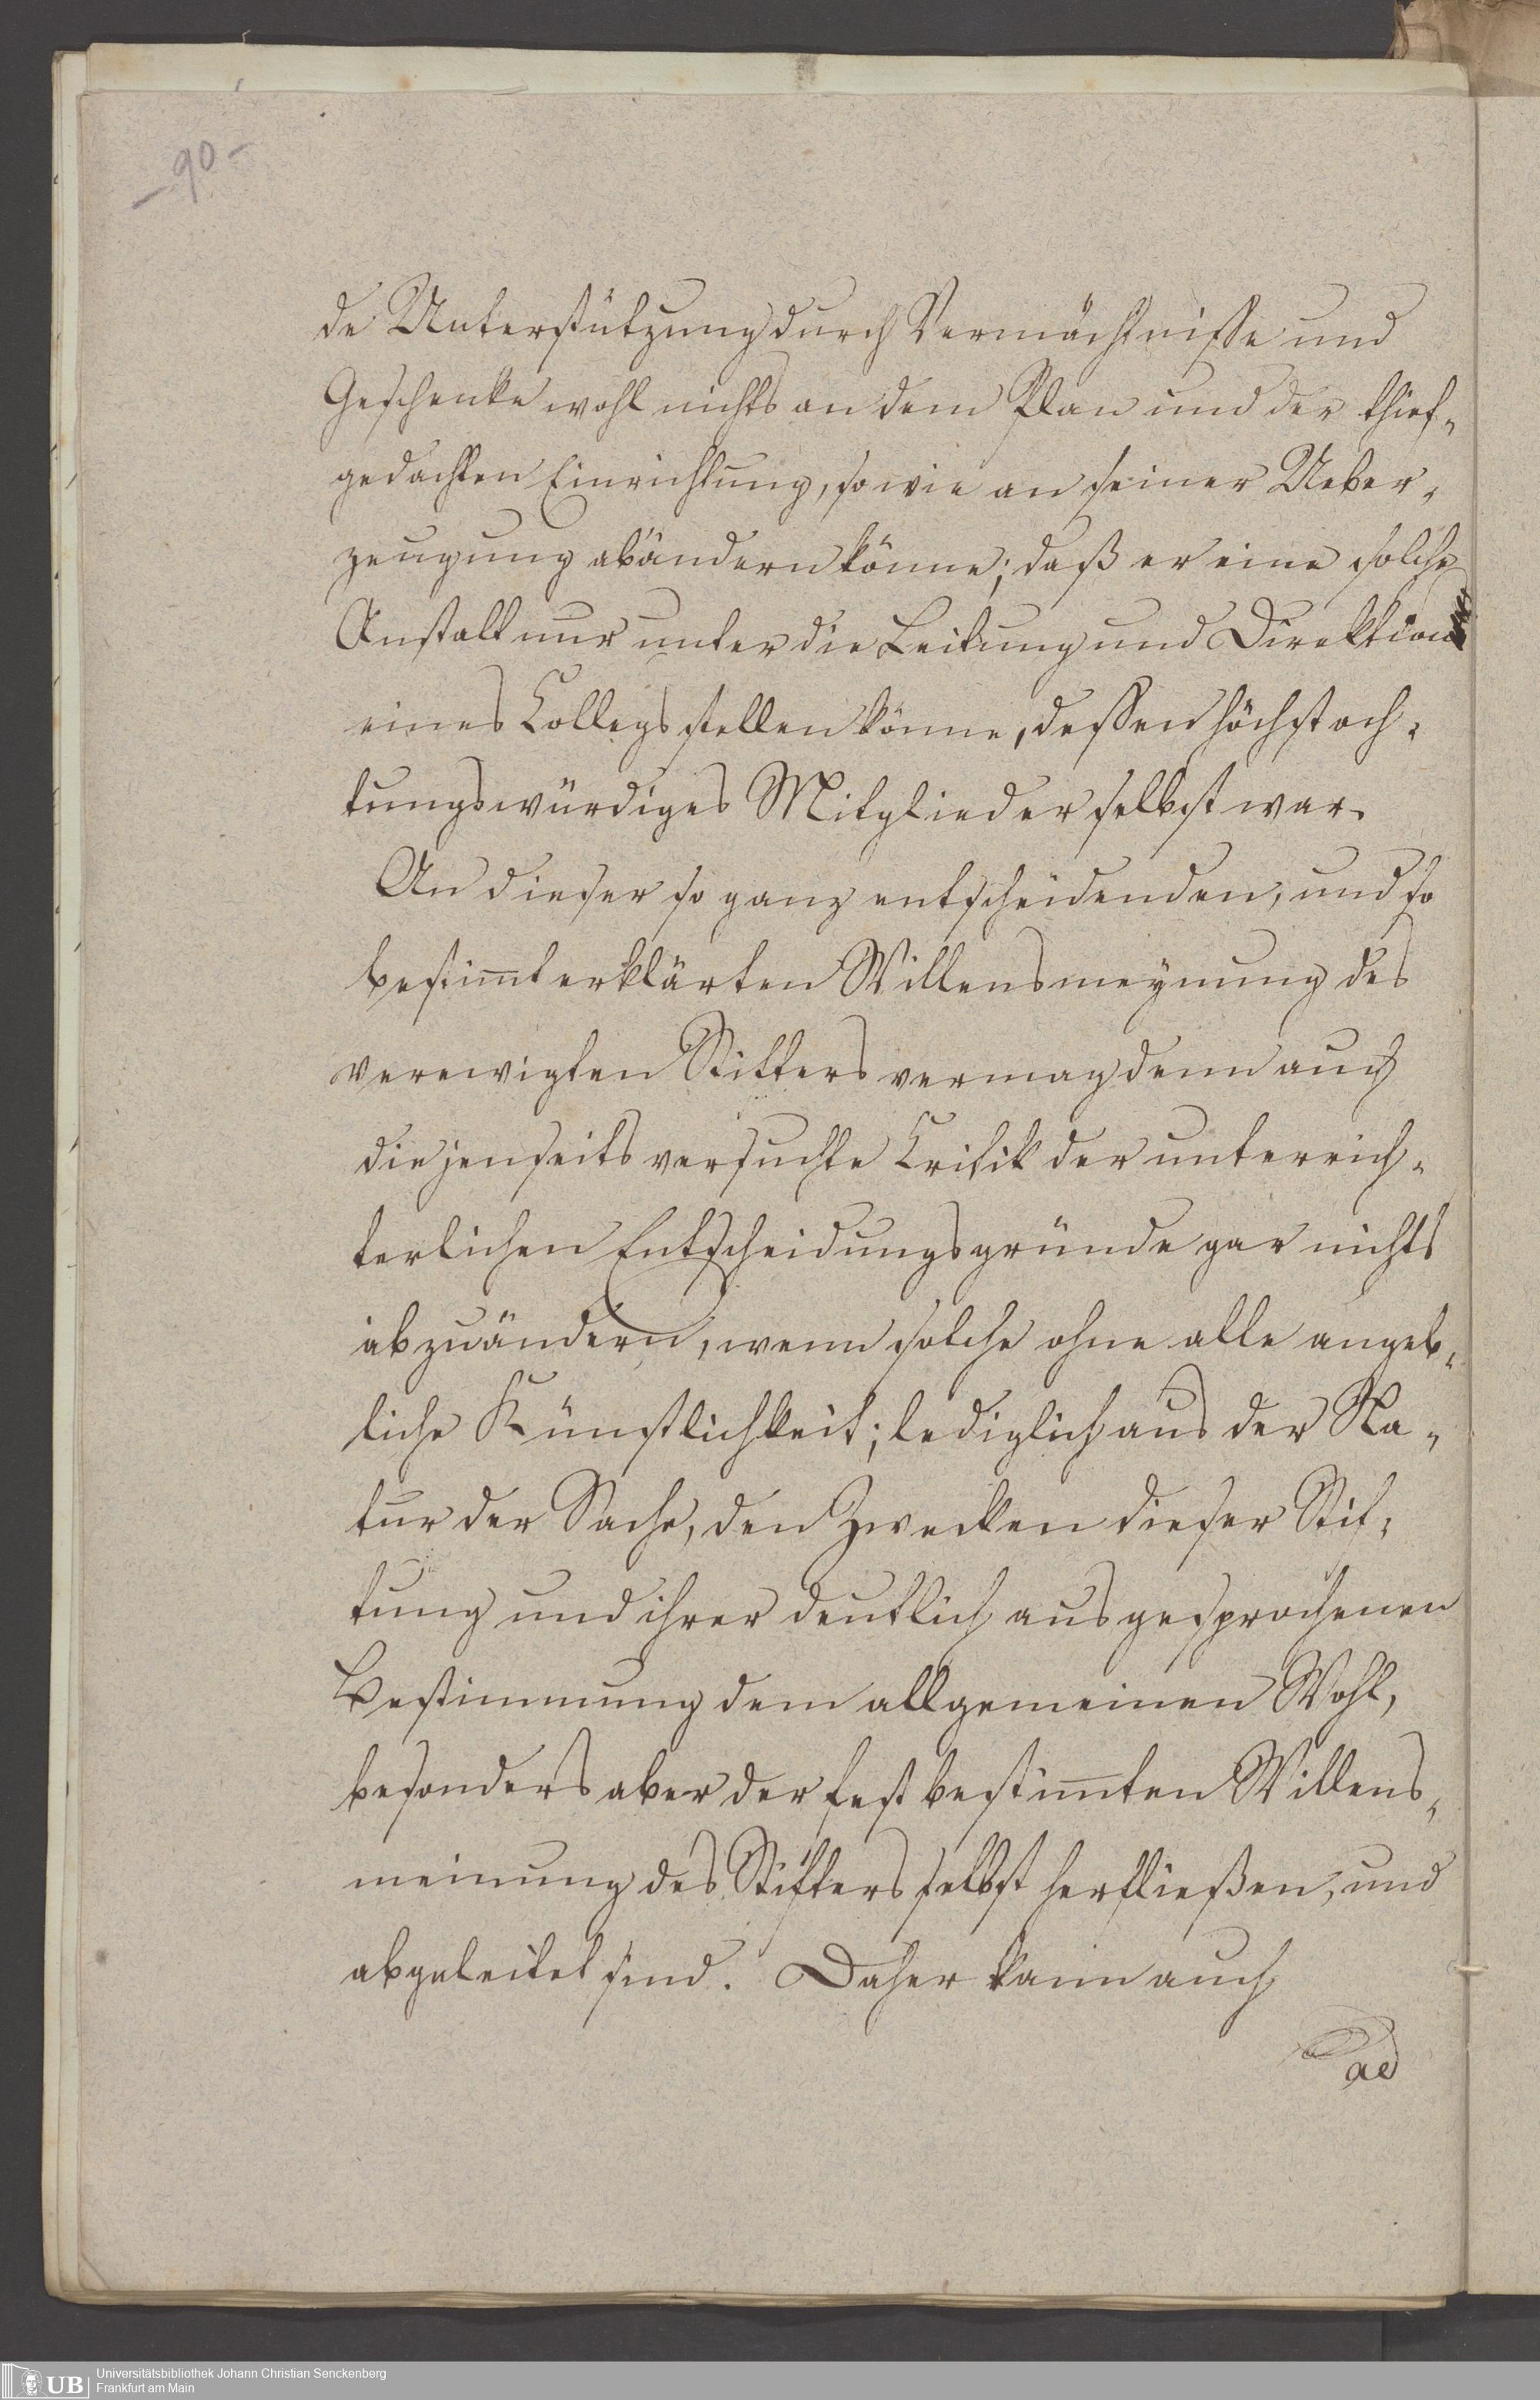 - 90 -
de Unterstützung durch Vermächtnisse und
Geschenke wohl nichts an dem Plan und der thief-
gedachten Einrichtung, so wie an seiner Ueber-
zeugung abändern könne; daß er eine solche
Anstalt nur unter die Leitung und Direktion
eines Collegs stellen könne, dessen höchst ach-
tungswürdiges Mitglied er selbst war.
An dieser so ganz entscheidenden, und so
bestim̅t erklärten Willensmeynung des
verewigten Stifters vermag denn auch
die jenseits versuchte Critik der unterrich-
terlichen Entscheidungsgründe gar nichts
abzuändern, wenn solche ohne alle angeb-
liche Künstlichkeit; lediglich aus der Na-
tur der Sache, den Zwecken dieser Stif-
tung und ihrer deutlich ausgesprochenen
Bestimmung dem allgemeinen Wohl,
besonders aber der fest bestim̅ten Willens-
meinung des Stifters selbst herfließen, und
abgeleitet sind. Daher kann auch
ad
UB
Universitätsbibliothek Johann Christian Senckenberg
Frankfurt am Main